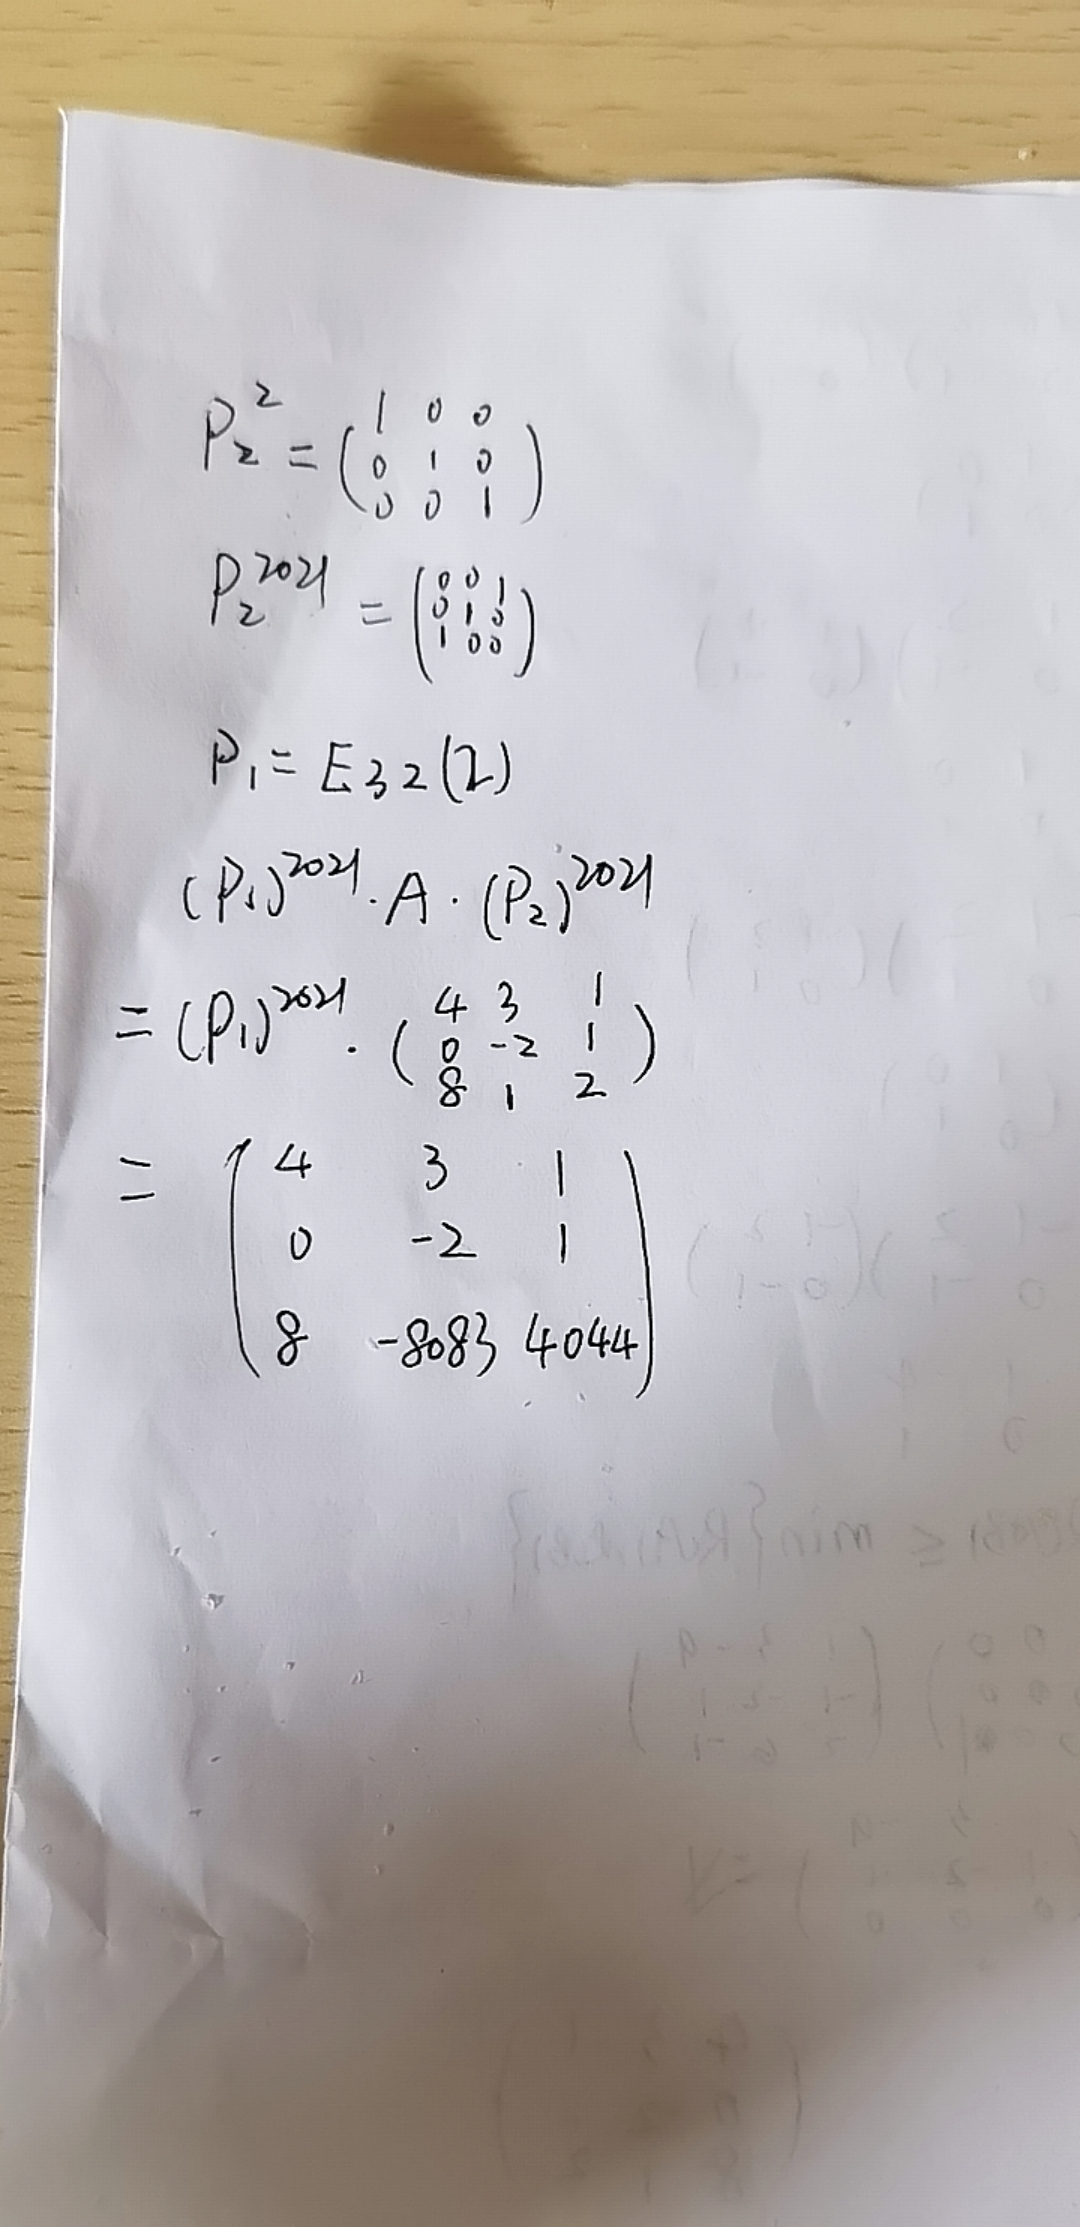 P₂² = (1 0 0
0 1 0
0 0 1)
P₂²⁰²¹ = (0 0 1
0 1 0
1 0 0)
P₁ = E32(2)
(P₁)²⁰²¹ · A · (P₂)²⁰²¹
= (P₁)²⁰²¹ · (4 3 1
0 -2 1
8 1 2)
= (4 3 1
0 -2 1
8 -8083 4044)